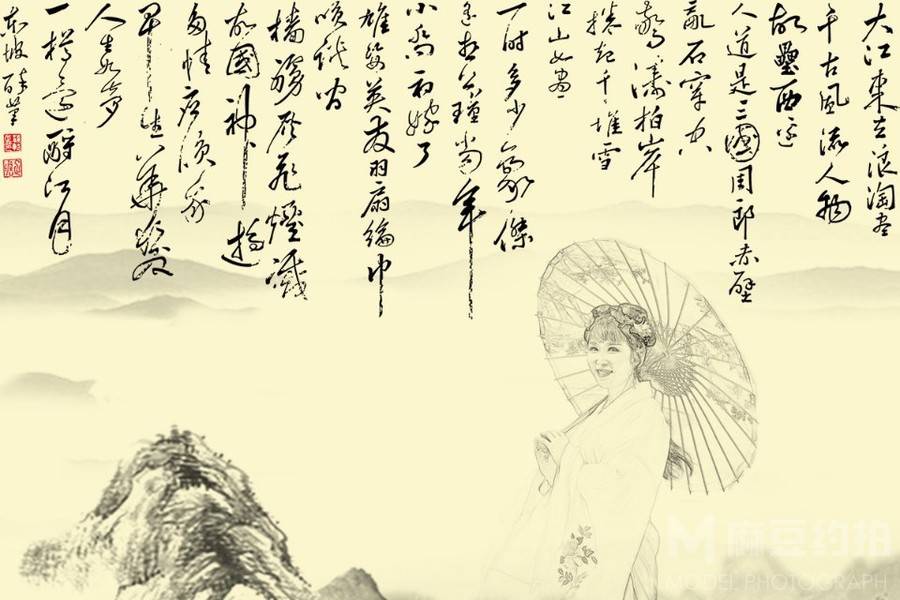 大江東去浪淘盡
千古風流人物
故壘西邊
人道是三國周郎赤壁
亂石穿空
驚濤拍岸
捲起千堆雪
江山如畫
一時多少豪傑
遙想公瑾當年
小喬初嫁了
雄姿英发羽扇綸巾
談笑間
檣艣灰飛煙滅
故國神遊
多情應笑我
早生華髮
人生如夢
一樽還酹江月
东坡醉筆
麻豆约拍
MODEL PHOTOGRAPH